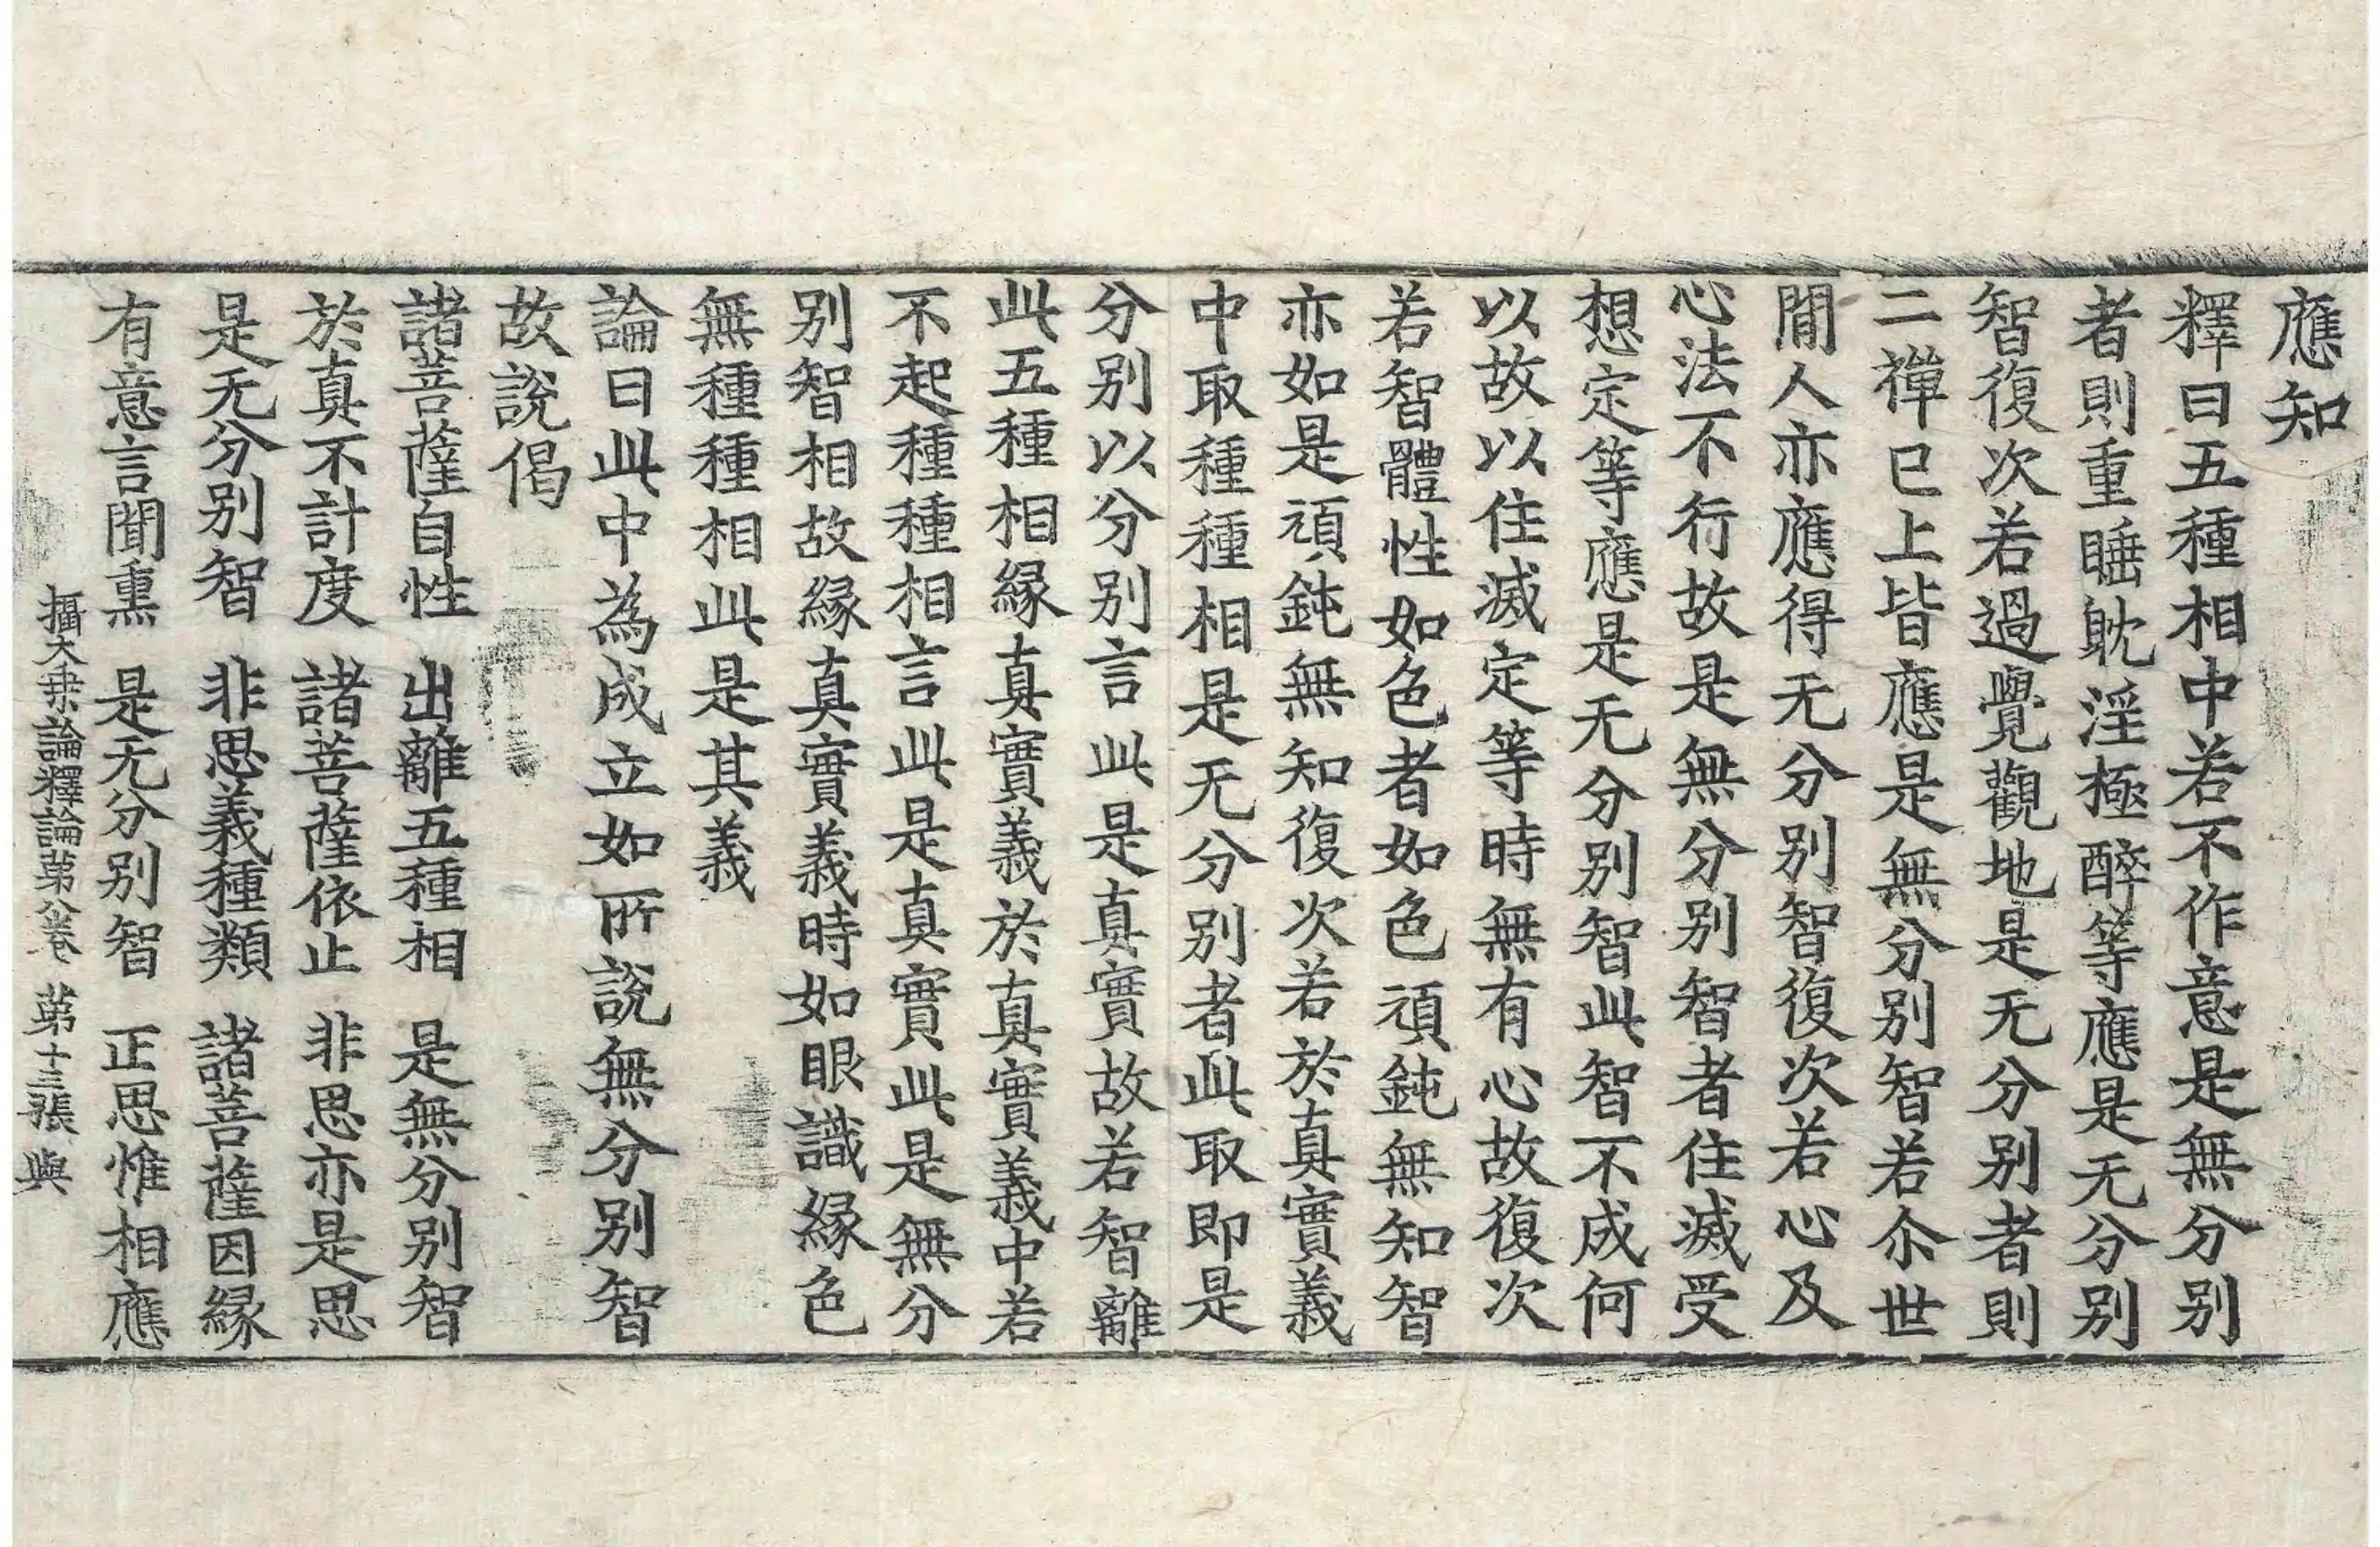 應知
釋曰五種相中若不作意是無分别
者則重睡躭淫極醉等應是无分别
智復次若過覺觀地是无分别者則
二禪已上皆應是無分别智若尒世
間人亦應得无分别智復次若心及
心法不行故是無分别智者住滅受
想定等應是无分别智此智不成何
以故以住滅定等時無有心故復次
若智體性如色者如色頑鈍無知智
亦如是頑鈍無知復次若於真實義
中取種種相是无分别者此取即是
分别以分别言此是真實故若智離
此五種相緣真實義於真實義中若
不起種種相言此是真實此是無分
别智相故緣真實義時如眼識緣色
無種種相此是其義
論曰此中為成立如所說無分别智
故說偈
諸菩薩自性　出離五種相　是無分别智
於真不計度　諸菩薩依止　非思亦是思
是无分别智　非思義種類　諸菩薩因緣
有意言聞熏　是无分别智　正思惟相應
攝大乗論釋論第八卷　第十三張　與